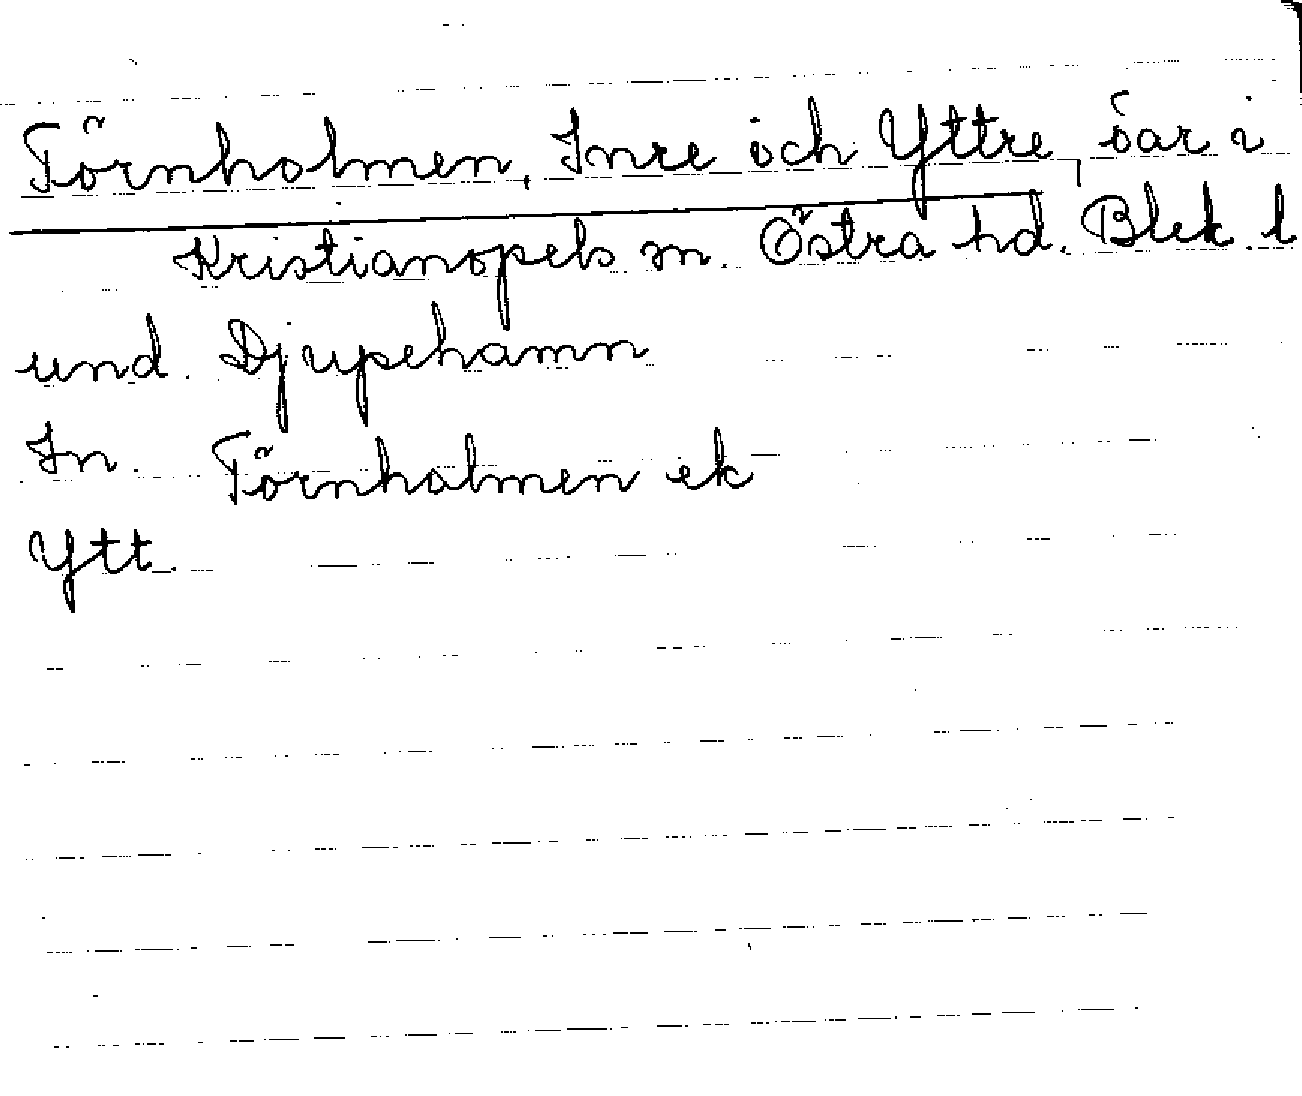 Törnholmen, Inre och Yttre, öar i
Kristianopels sn. Östra hd. Blek. l
und. Djupehamn
In. Törnholmen ek
Ytt.